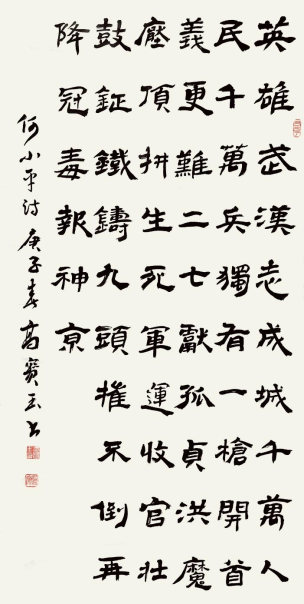 英雄武漢志成城千萬人
民千萬兵獨有一槍開首
義更難二七獻孤貞洪魔
壓頂拼生死軍運收官壯
鼓鉦鐵鑄九頭推不倒再
降冠毒報神京
何小平詩 庚子春 高寶玉書